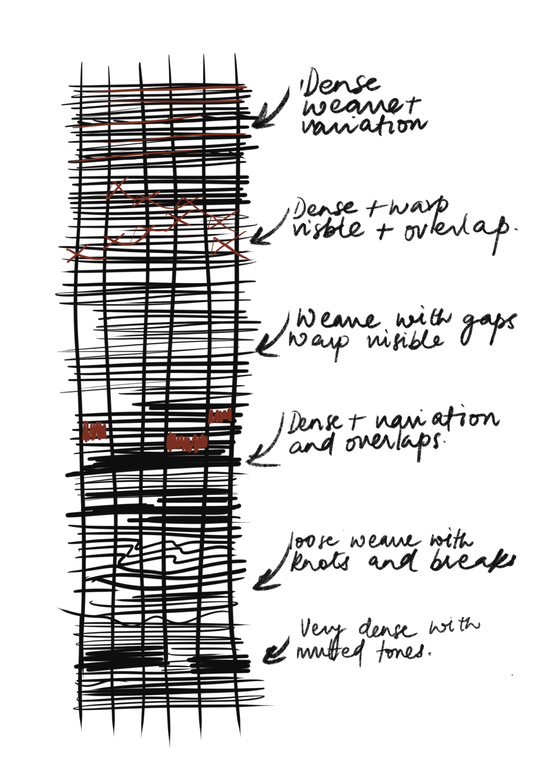 Dense
weave +
variation
Dense + warp
visble + overlap.
Weave with gaps
warp visible
Dense + variation
and overlaps.
loose weave with
knots and breaks
Very dense with
muted tones.